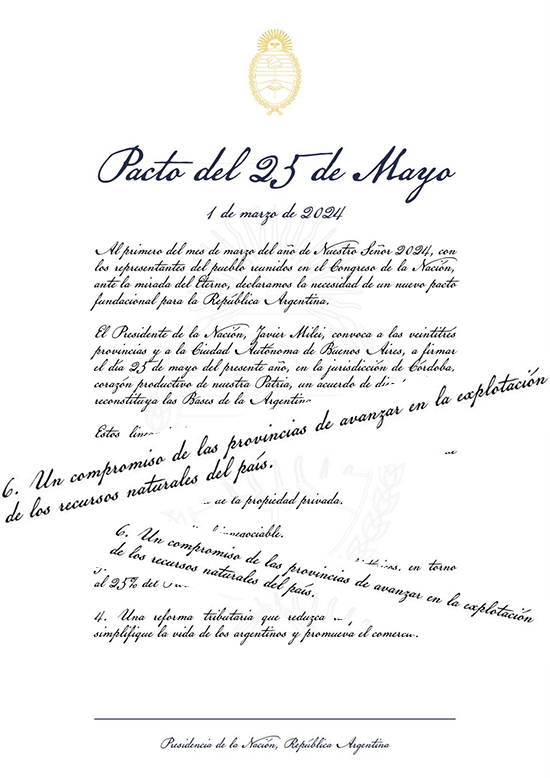 Pacto del 25 de Mayo
1 de marzo de 2024
Al primero del mes de marzo del año de Nuestro Señor 2024, con
los representantes del pueblo reunidos en el Congreso de la Nación,
ante la mirada del Eterno, declaramos la necesidad de un nuevo pacto
fundacional para la República Argentina.
El Presidente de la Nación, Javier Milei, convoca a las veintitrés
provincias y a la Ciudad Autónoma de Buenos Aires, a firmar
el día 25 de mayo del presente año, en la jurisdicción de Córdoba,
corazón productivo de nuestra Patria, un acuerdo de
reconstituya las Bases de la
Estos
6. Un compromiso de las provincias de avanzar en la explotación
de los recursos naturales del país.
la propiedad privada.
6. Un compromiso de las provincias de avanzar en la explotación
de los recursos naturales del país.
en torno
al 25% del
4. Una reforma tributaria que reduzca
simplifique la vida de los argentinos y promueva el
Presidencia de la Nación, República Argentina